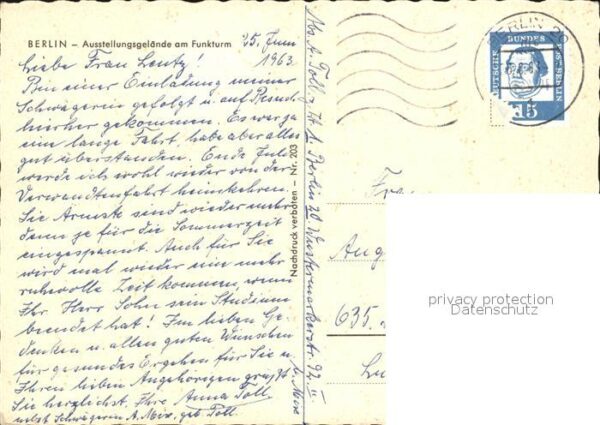 BERLIN – Ausstellungsgelände am Funkturm
25. Juni
1963
Liebe Frau Lentz!
Bin einer Einladung meiner
Schwägerin gefolgt u. auf Besuch
hierher gekommen. Es war ja
eine lange Fahrt, habe aber alles
gut überstanden. Ende Juli
werde ich wohl wieder von der
Verwandtenfahrt heimkehren.
Sie Ärmste sind wieder mehr
denn je für die Sommerzeit
eingespannt. Auch für Sie
wird mal wieder ein mehr
ruhevolle Zeit kommen, wenn
Ihr Herr Sohn sein Studium
beendet hat! Im lieben Ge-
denken u. allen guten Wünschen
für gesundes Ergehen für Sie u.
Ihren lieben Angehörigen grüßt
Sie herzlichst Ihre Anna Toll
nebst Schwägerin A. Mix, geb. Toll
Nachdruck verboten – Nr. 203
Abs. A. Toll, z. Zt. 1 Berlin 20. Wustermarkerstr. 92, II
b. Mix
BERLIN 20
DEUTSCHE BUNDESPOST BERLIN
15
Fra
Aug
635
privacy protection
Datenschutz